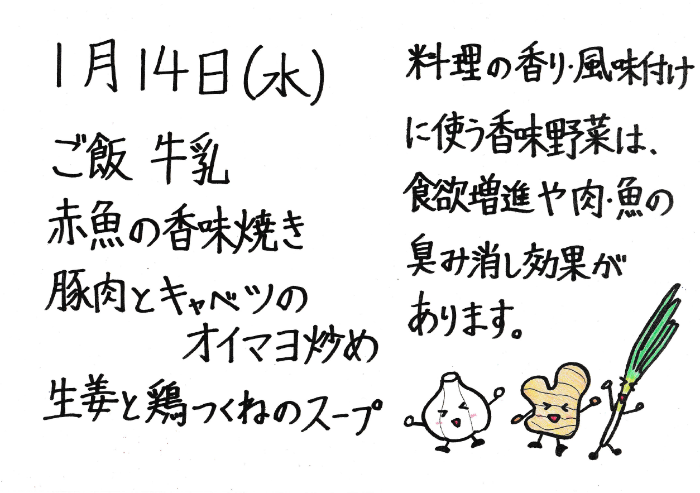 1月14日(水)
ご飯 牛乳
赤魚の香味焼き
豚肉とキャベツの
オイマヨ炒め
生姜と鶏つくねのスープ
料理の香り・風味付け
に使う香味野菜は、
食欲増進や肉・魚の
臭み消し効果が
あります。